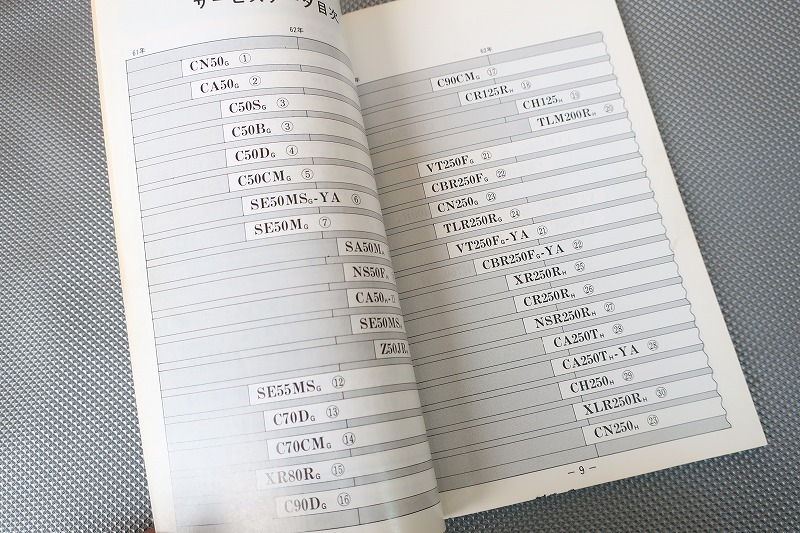 サービスデータ目次
61年
62年
CN50G ①
CA50G ②
C50SG ③
C50BG ③
C50DG ④
C50CMG ⑤
SE50MSG-YA ⑥
SE50MG ⑦
SA50M
NS50F
CA50H-
SE50MS
Z50JR
SE55MSG ⑫
C70DG ⑬
C70CMG ⑭
XR80RG ⑮
C90DG ⑯
年
63年
C90CMG ⑰
CR125RH ⑱
CH125H ⑲
TLM200RH ⑳
VT250FG ㉑
CBR250FG ㉒
CN250G ㉓
TLR250RG ㉔
VT250FG-YA ㉑
CBR250FG-YA ㉒
XR250RH ㉕
CR250RH ㉖
NSR250RH ㉗
CA250TH ㉘
CA250TH-YA ㉘
CH250H ㉙
XLR250RH ㉚
CN250H ㉓
－9－